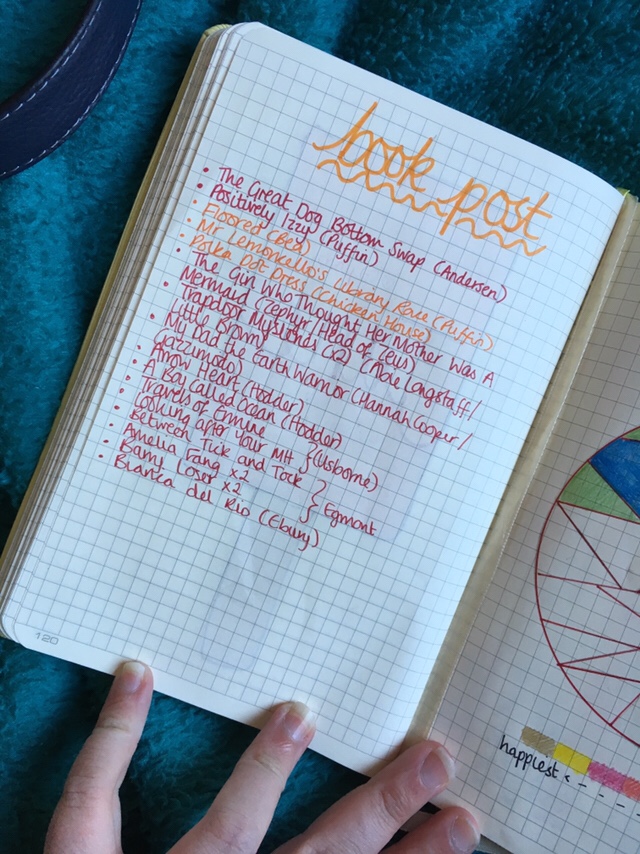 book post
• The Great Dog Bottom Swap (Andersen)
• Positively Izzy (Puffin)
• Floored (Bea)
• Mr Lemoncello's Library Race (Puffin)
• Polka Dot Dress (Chicken House)
• The Girl Who Thought Her Mother Was A
Mermaid (Zephyr/Head of Zeus)
• Trapdoor Mysteries (x2) (Abie Longstaff/
Little Brown)
• My Dad the Earth Warrior (Hannah Cooper/
Gazzimodo)
• Arrow Heart (Hodder)
• A Boy Called Ocean (Hodder)
• Travels of Ermine
• Looking after Your MH } (Usborne)
• Between Tick and Tock
• Amelia Fang x2
• Barny Loser x2 } Egmont
• Bianca del Rio (Ebury)
120
happiest <